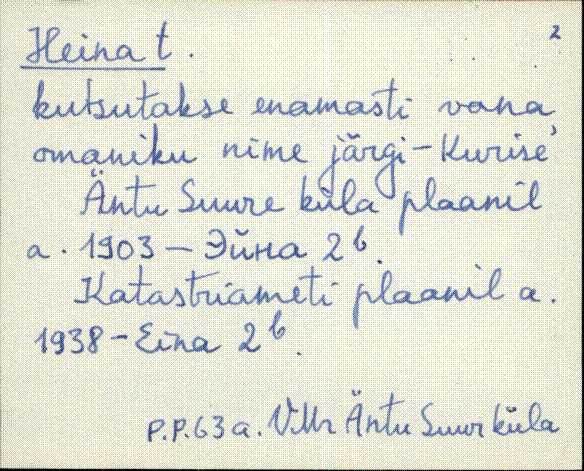 2
Heina t.
kutsutakse enamasti vana
omaniku nime järgi - Kurise
Äntu Suure küla plaanil
a. 1903 - Эйна 2б.
Katastriameti plaanil a.
1938 - Eina 2b.
P.P. 63 a. VMr Äntu Suurküla